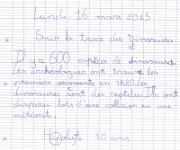 Lundi 16 mars 2015
Sur la trace des Dinosaures
Il y a 600 espèces de dinosaures
les archéologues ont trouvé les
premiers ossements en 1820 les
dinosaures sont des reptiles. Ils ont
disparus lors d'une collision avec une
météorite.
10 ans